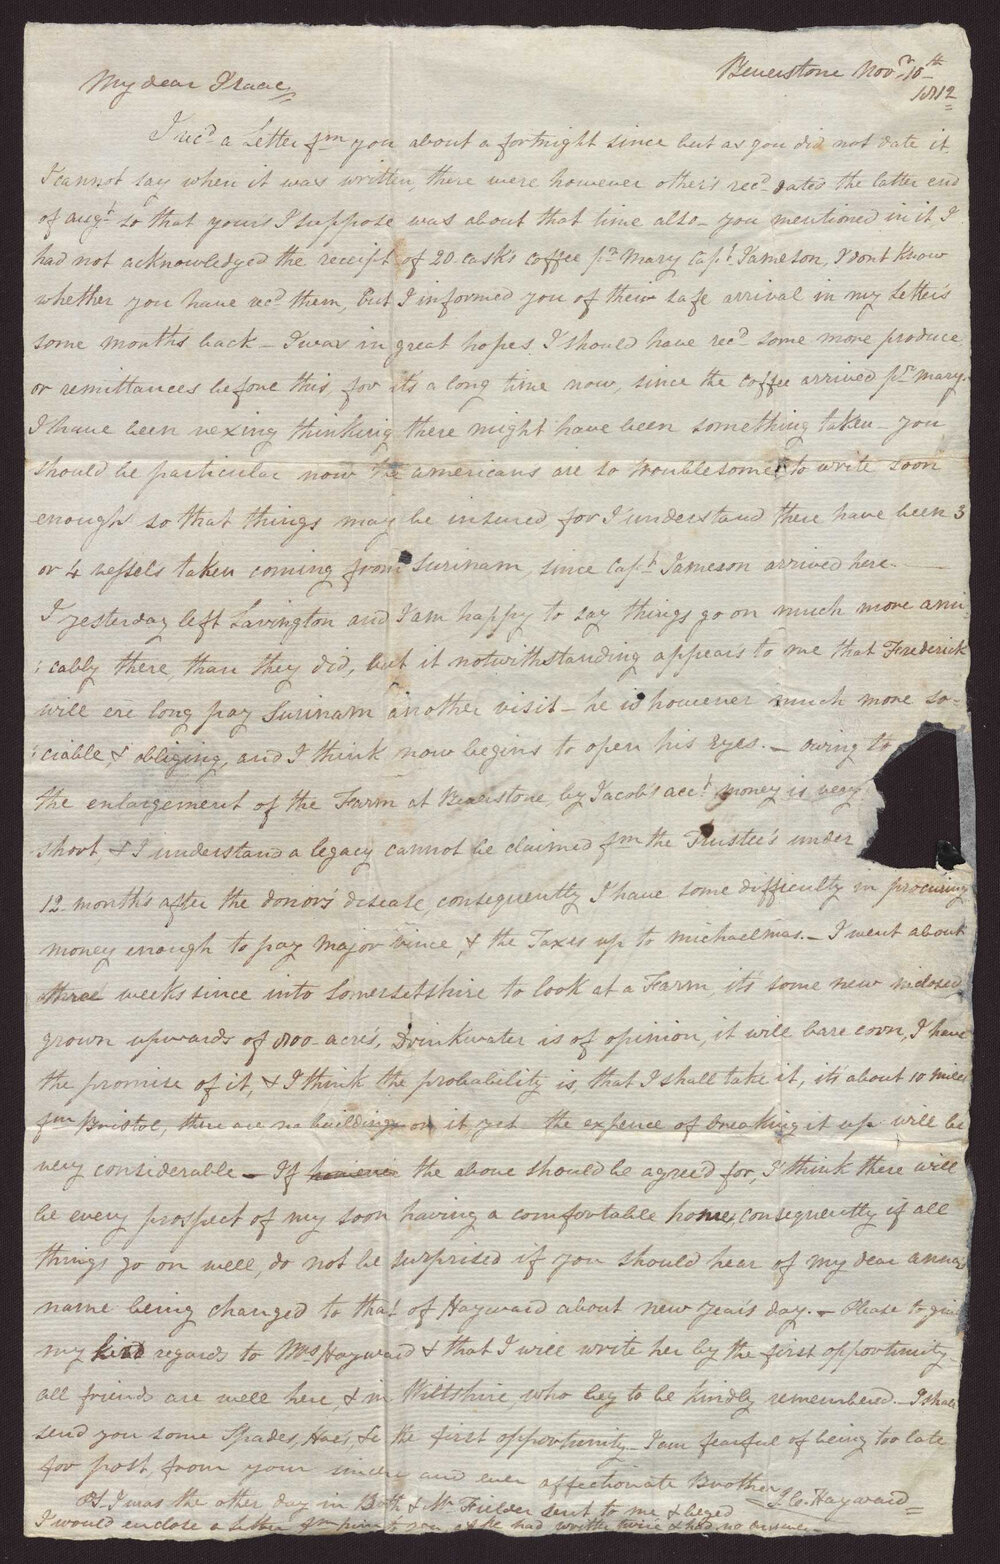 Beverstone Novr 10th
1812
My dear Isaac,
I recd a Letter fm you about a fortnight since but as you did not date it
I cannot say when it was written, there were however others recd dated the latter end
of augt so that yours I suppose was about that time also - you mentioned in it I
had not acknowledged the receipt of 20 casks coffee pr Mary Capt Jameson, I dont Know
whether you have recd them, but I informed you of their safe arrival in my Letters
some months back - I was in great hopes I should have recd some more produce
or remittances before this, for its a long time now, since the coffee arrived pr Mary.
I have been vexing thinking there might have been something taken - you
should be particular now the americans are so troublesome to write soon
enough so that things may be insured for I understand there have been 3
or 4 vessels taken coming from Surinam, since Capt Jameson arrived here. —
I yesterday left Lavington and I am happy to say things go on much more ami
:cably there, than they did, but it notwithstanding appears to me that Frederick
will ere long pay Surinam another visit - he is however much more so-
:ciable & obliging, and I think now begins to open his Eyes. - owing to
the enlargement of the Farm at Beverstone, by Jacobs acct money is very
short, & I understand a legacy cannot be claimed fm the Trustee's under
12 months after the donor's disease, consequently I have some difficulty in procuring
money enough to pay Major Vince & the Taxes up to michaelmas. - I went about
three weeks since into Somersetshire to look at a Farm, its some new inclosed
grown upwards of 800 acres, Drinkwater is of opinion, it will bare corn, I have
the promise of it, & I think the probability is, that I shall take it, its about 10 miles
fm Bristol, there are no buildings on it, yet the expence of breaking it up will be
very considerable - If the above should be agreed for, I think there will
be every prospect of my soon having a comfortable home, consequently if all
things go on well, do not be surprised if you should hear of my dear anna's
name being changed to that of Hayward about new years day. - Please to give
my kind regards to Mrs Hayward & that I will write her by the first opportunity
all friends are well here, & in Wiltshire, who beg to be kindly remembered. - I shall
send you some Spades, Hoes, &c the first opportunity - I am fearful of being too late
for post, from your sincere and ever affectionate Brother
J. C. Hayward
PS. I was the other day in Bath & Mr Fielder sent to me & beged
I would enclose a letter fm him to you, as he had wrote twice & had no answer -